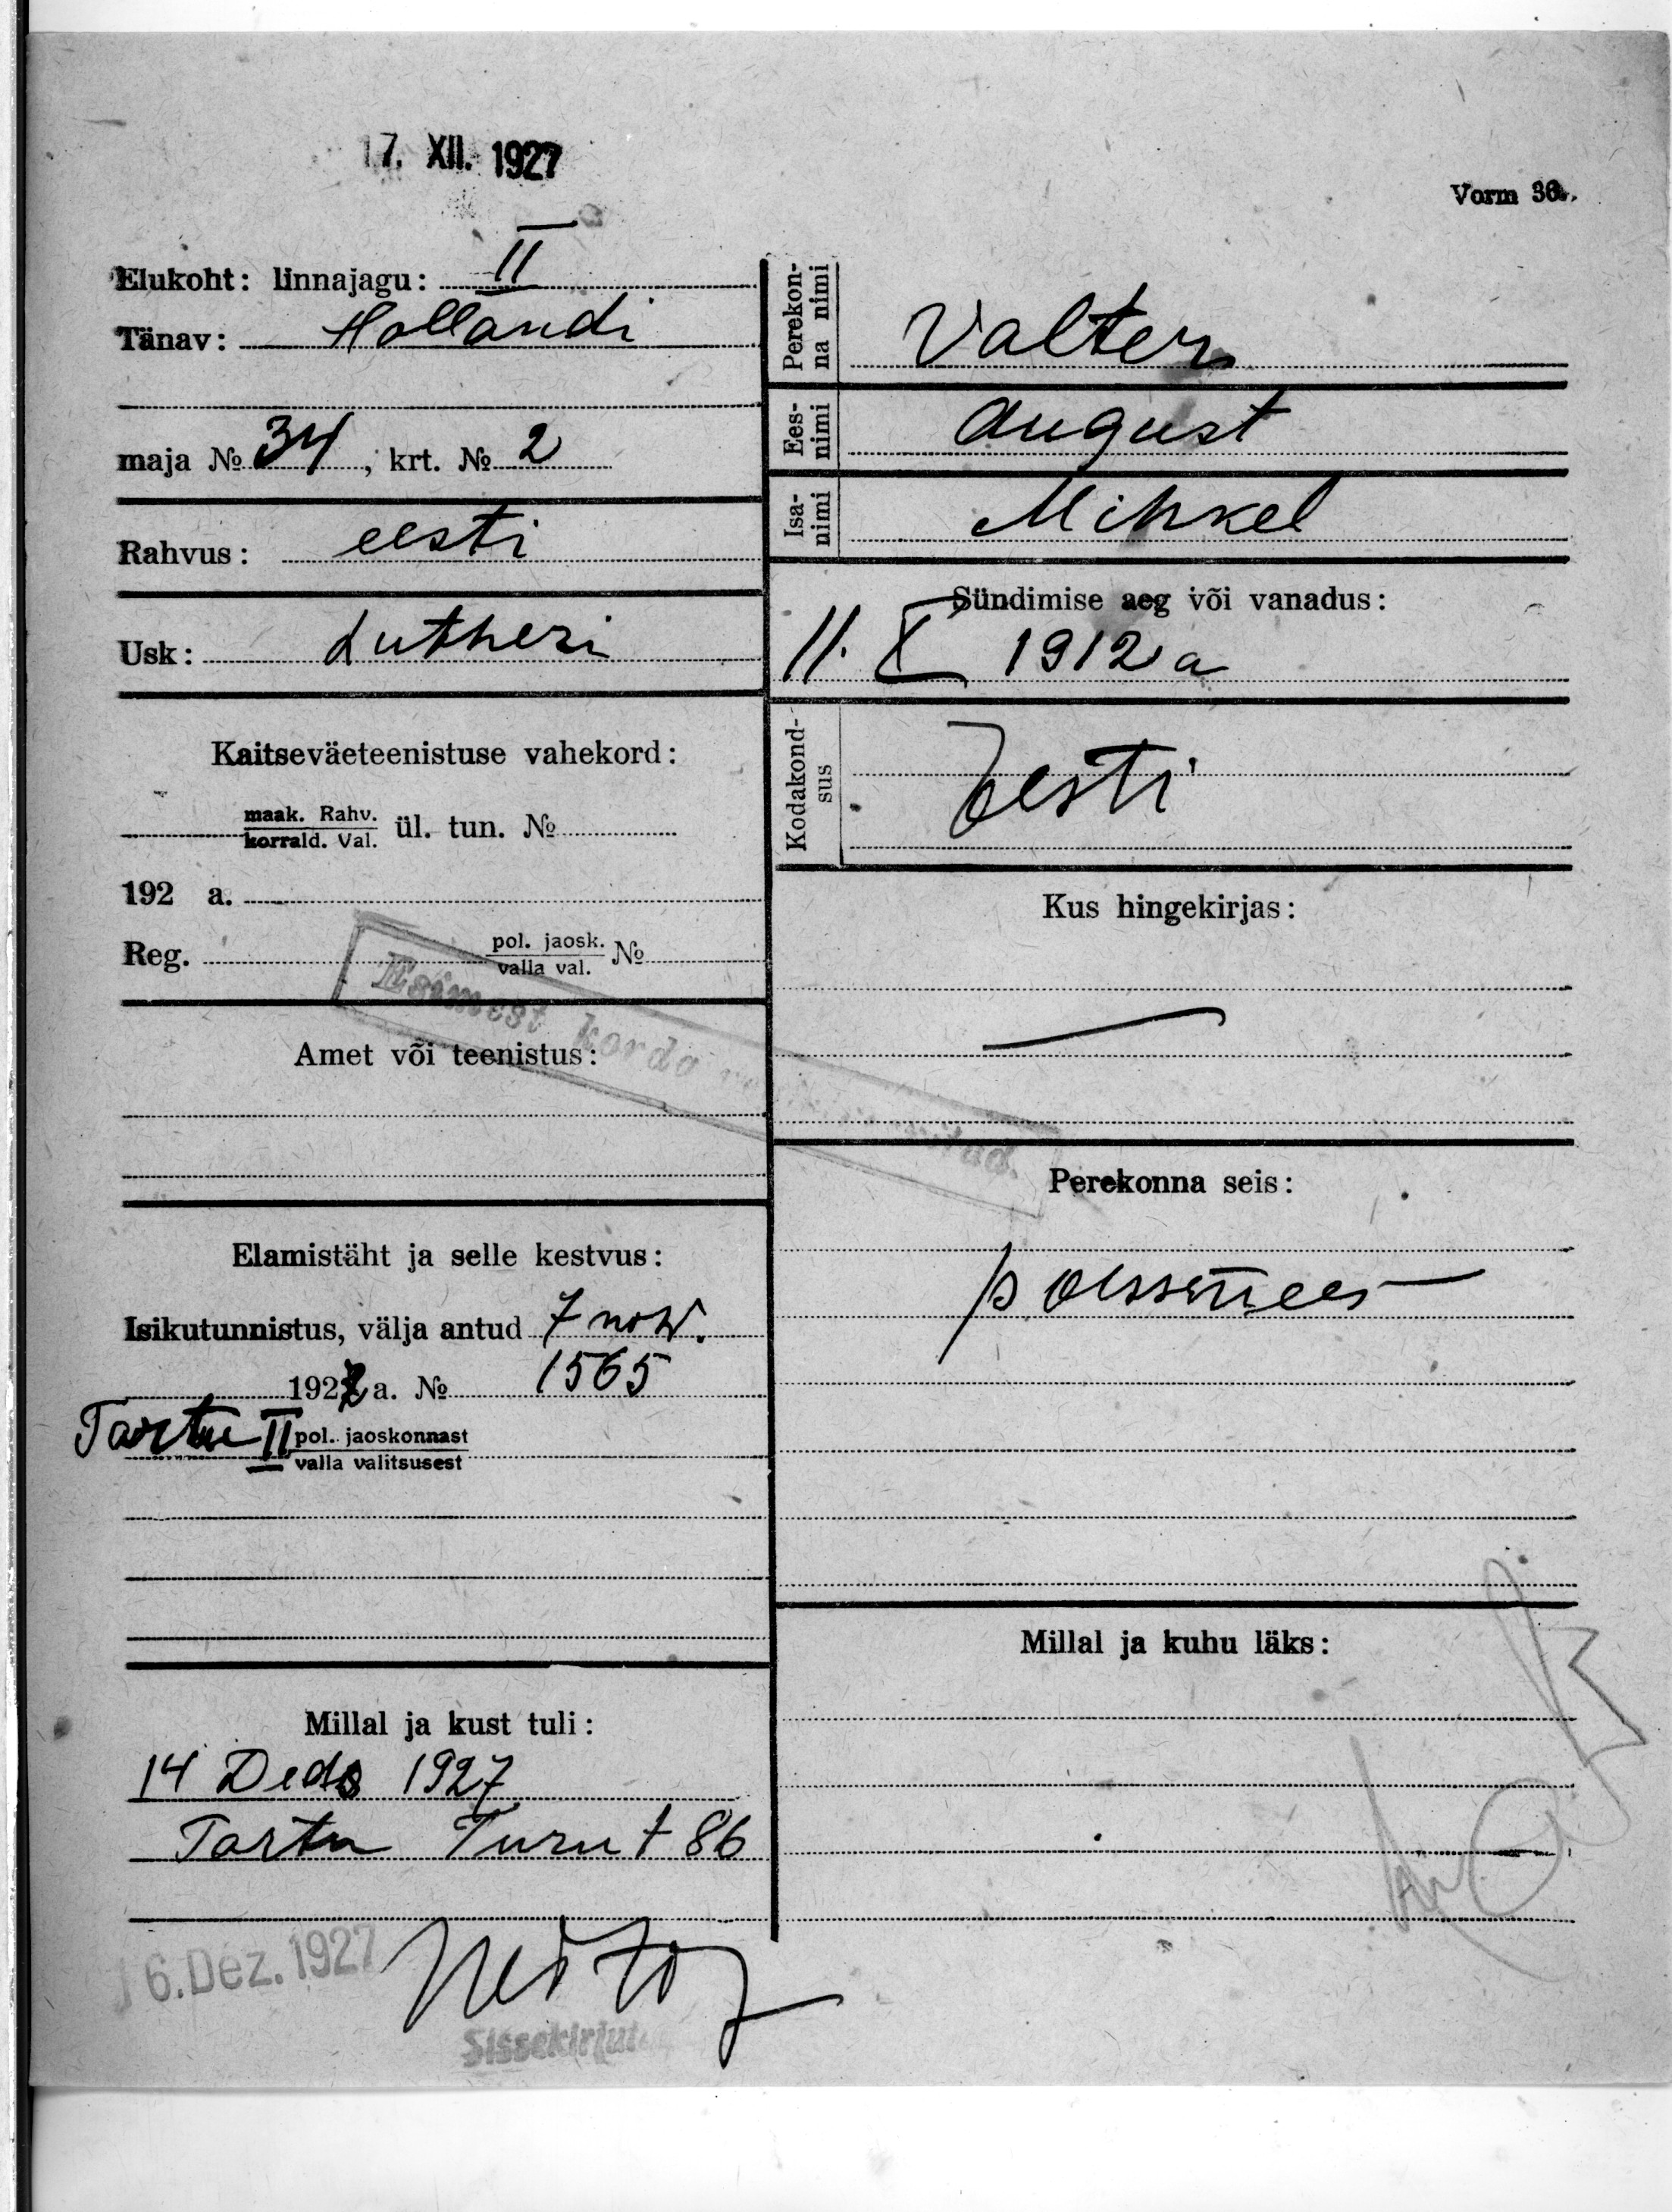 17. XII. 1927
Vorm 36.
Elukoht: linnajagu: II
Tänav: Hollandi
maja № 34, krt. № 2
Rahvus: eesti
Usk: Lutheri
Kaitseväeteenistuse vahekord:
maak. Rahv.
korrald. Val. ül. tun. №
192 a.
Reg. pol. jaosk. №
valla val.
Esimest korda
Amet või teenistus:
Elamistäht ja selle kestvus:
Isikutunnistus, välja antud 7 now.
1927 a. № 1565
Tartu II pol. jaoskonnast
valla valitsusest
Millal ja kust tuli:
14 Deds 1927
Tartu Turu t 86
16. Dez. 1927
Perekon-
na nimi
Valter
Ees-
nimi
August
Isa-
nimi
Mihkel
Sündimise aeg või vanadus:
11. X 1912 a
Kodakond-
sus
Eesti
Kus hingekirjas:
Perekonna seis:
poissmees
Millal ja kuhu läks: